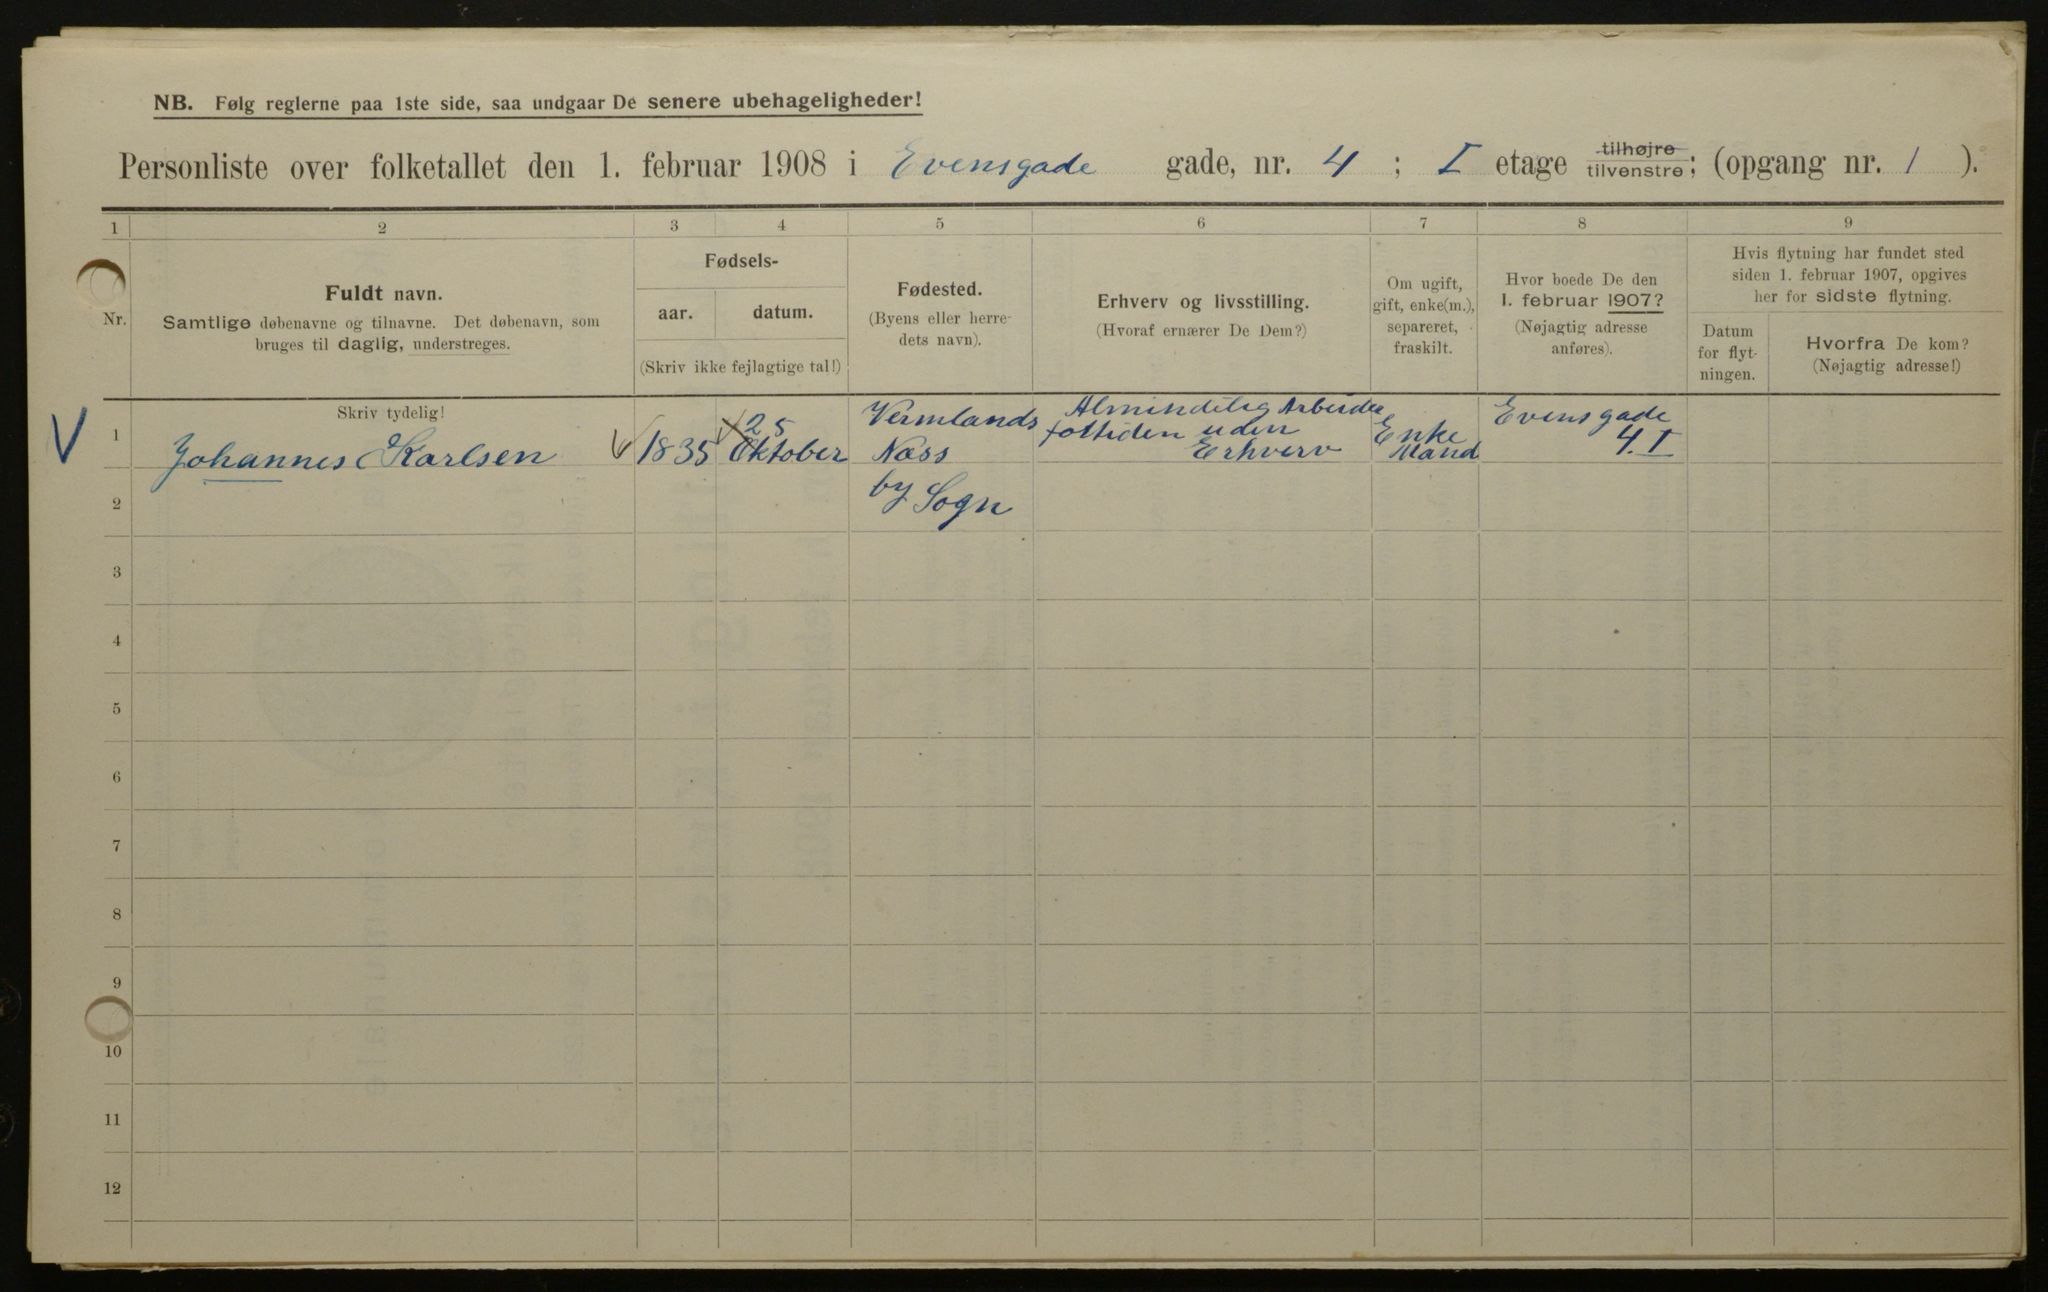 NB. Følg reglerne paa 1ste side, saa undgaar De senere ubehageligheder!
Personliste over folketallet den 1. februar 1908 i Evensgade gade, nr. 4 ; I etage tilhøjre tilvenstre; (opgang nr. 1 ).
1 2 3 4 5 6 7 8 9
Nr.
Fuldt navn.
Samtlige døbenavne og tilnavne. Det døbenavn, som
bruges til daglig, understreges.
Fødsels-
aar. datum.
(Skriv ikke fejlagtige tal!)
Fødested.
(Byens eller herre-
dets navn).
Erhverv og livsstilling.
(Hvoraf ernærer De Dem?)
Om ugift,
gift, enke(m.),
separeret,
fraskilt.
Hvor boede De den
1. februar 1907?
(Nøjagtig adresse
anføres).
Hvis flytning har fundet sted
siden 1. februar 1907, opgives
her for sidste flytning.
Datum
for flyt-
ningen.
Hvorfra De kom?
(Nøjagtig adresse!)
Skriv tydelig!
V
1
Johannes Karlsen
1835
25
Oktober
Vermlands
Næss
by Sogn
Almindelig Arbeider
uden
Erhverv
Enke
Mand
Evensgade
4. I
2
3
4
5
6
7
8
9
10
11
12